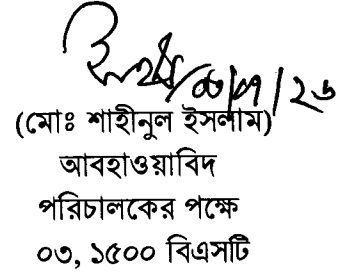 ০৩/০৭/২৬
(মোঃ শাহীনুল ইসলাম)
আবহাওয়াবিদ
পরিচালকের পক্ষে
০৩, ১৫০০ বিএসটি